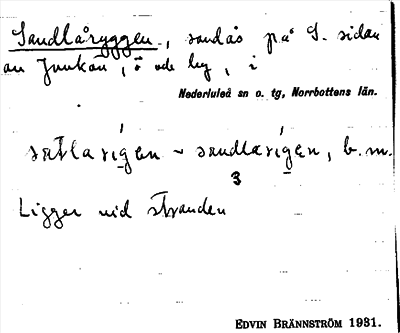 Sandlåryggen, sandås på S. sidan
av Junkön, ö och by, i
Nederluleå sn o. tg, Norrbottens län.
satlarigen ~ sandlarigen, b. m.
3
Ligger vid stranden
EDVIN BRÄNNSTRÖM 1931.